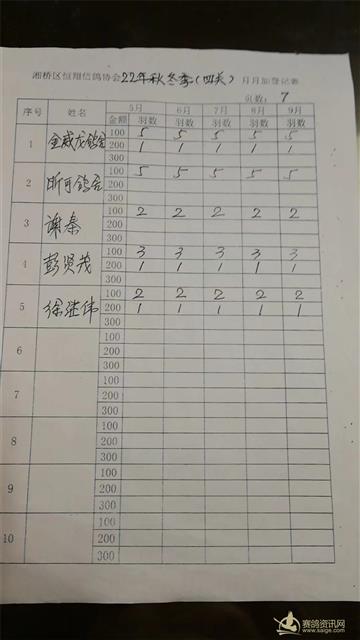 湘桥区恒翔信鸽协会22年秋冬季(四关)月月加登记表
页数: 7
序号 姓名 5月 6月 7月 8月 9月
金额 羽数 羽数 羽数 羽数 羽数
1 金威龙鸽舍 100 5 5 5 5 5
200 1 1 1 1 1
300
2 昕可鸽舍 100 5 5 5 5 5
200
300
3 谢秦 100 2 2 2 2 2
200
300
4 彭贤茂 100 3 3 3 3 3
200 1 1 1 1 1
300
5 徐继伟 100 2 2 2 2 2
200 1 1 1 1 1
300
6 100
200
300
7 100
200
300
8 100
200
300
9 100
200
300
10 100
200
300
赛鸽资讯网
www.saige.com